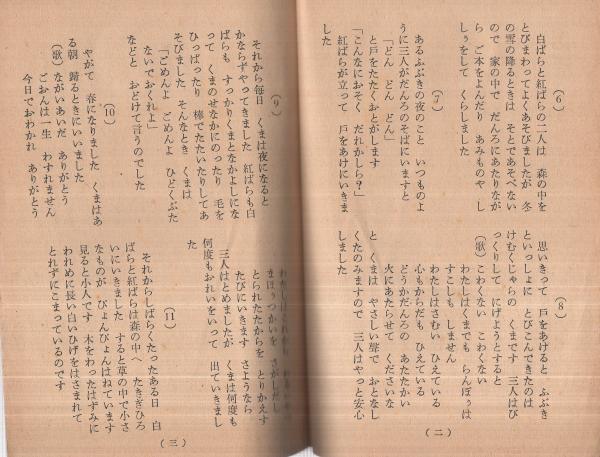 (6)
白ばらと紅ばらの二人は 森の中を
とびまわってよくあそびましたが 冬
の雪の降るときは そとであそべない
ので 家の中で だんろにあたりなが
ら ご本をよんだり あみものや し
しゅうをして くらしました
(7)
あるふぶきの夜のこと いつものよ
うに三人がだんろのそばにいますと
「どん どん どん」
と戸をたたくおとがします
「こんなにおそく だれかしら？」
紅ばらが立って 戸をあけにいきま
した
(8)
思いきって 戸をあけると ふぶき
といっしょに とびこんできたのは
けむくじゃらの くまです 三人はび
っくりして にげようとすると
(歌) こわくない こわくない
わたしはくまでも らんぼうは
すこしも しません
わたしはさむい ひえている
心もからだも ひえている
どうかだんろの あたたかい
火にあたらせて くださいな
と くまは やさしい聲で おとなし
くたのみますので 三人はやっと安心
しました
(二)
(9)
それから毎日 くまは夜になると
かならずやってきました 紅ばらも白
ばらも すっかりくまとなかよしにな
って くまのせなかにのったり 毛を
ひっぱったり 棒でたたいたりしてあ
そびました そんなとき くまは
「ごめんよ ごめんよ ひどくぶた
ないでおくれよ」
などと おどけて言うのでした
(10)
やがて 春になりました くまはあ
る朝 歸るときにいいました
(歌) ながいあいだ ありがとう
ごおんは一生 わすれません
今日でおわかれ ありがとう
わたしはこれから
まほうつかいを さがしだし
とられたたからを とりかえす
たびにいきます さようなら
三人はとめましたが くまは何度も
何度もおれいをいって 出ていきまし
た
(11)
それからしばらくたったある日 白
ばらと紅ばらは森の中へ たきぎひろ
いにいきました すると草の中で小さ
なものが ぴょんぴょんはねています
見ると小人です 木をわったはずみに
われめに長い白いひげをはさまれて
とれずにこまっているのです
(三)